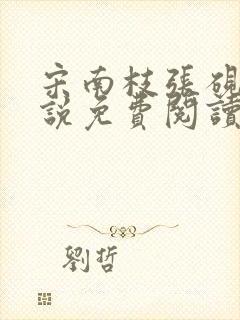 宋南枝張硯
說免費閱讀
劉哲